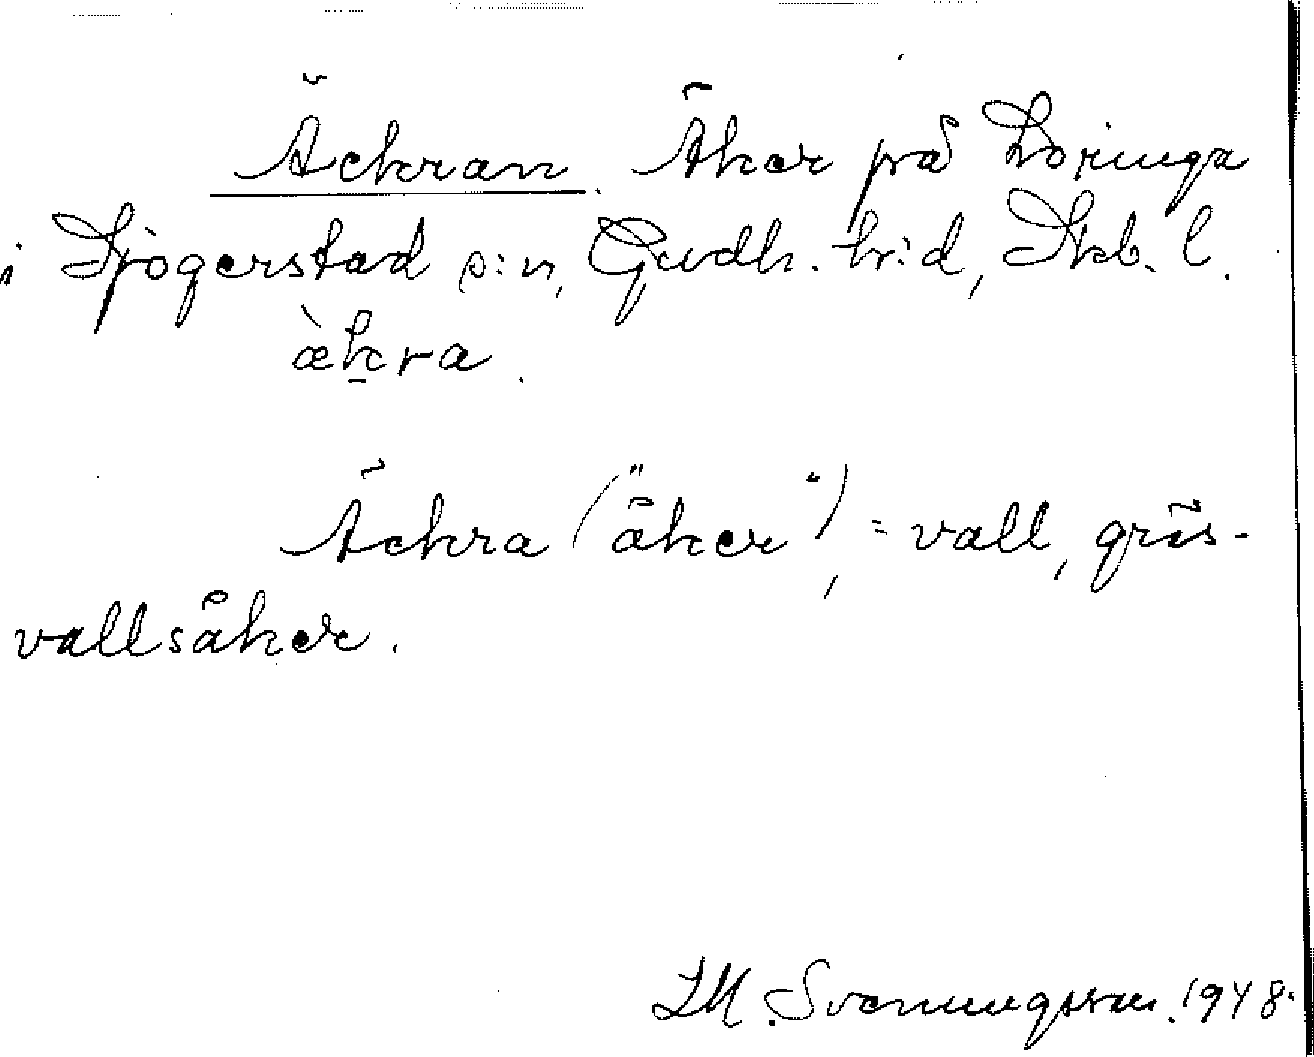 Äckran. Åker på Loringa
i Sjögerstad s:n, Gudh. h:d, Skb. l.
æ̀kra.
Äckra ("åker"), = vall, gräs-
vallsåker.
LM. Svenungsson. 1948.